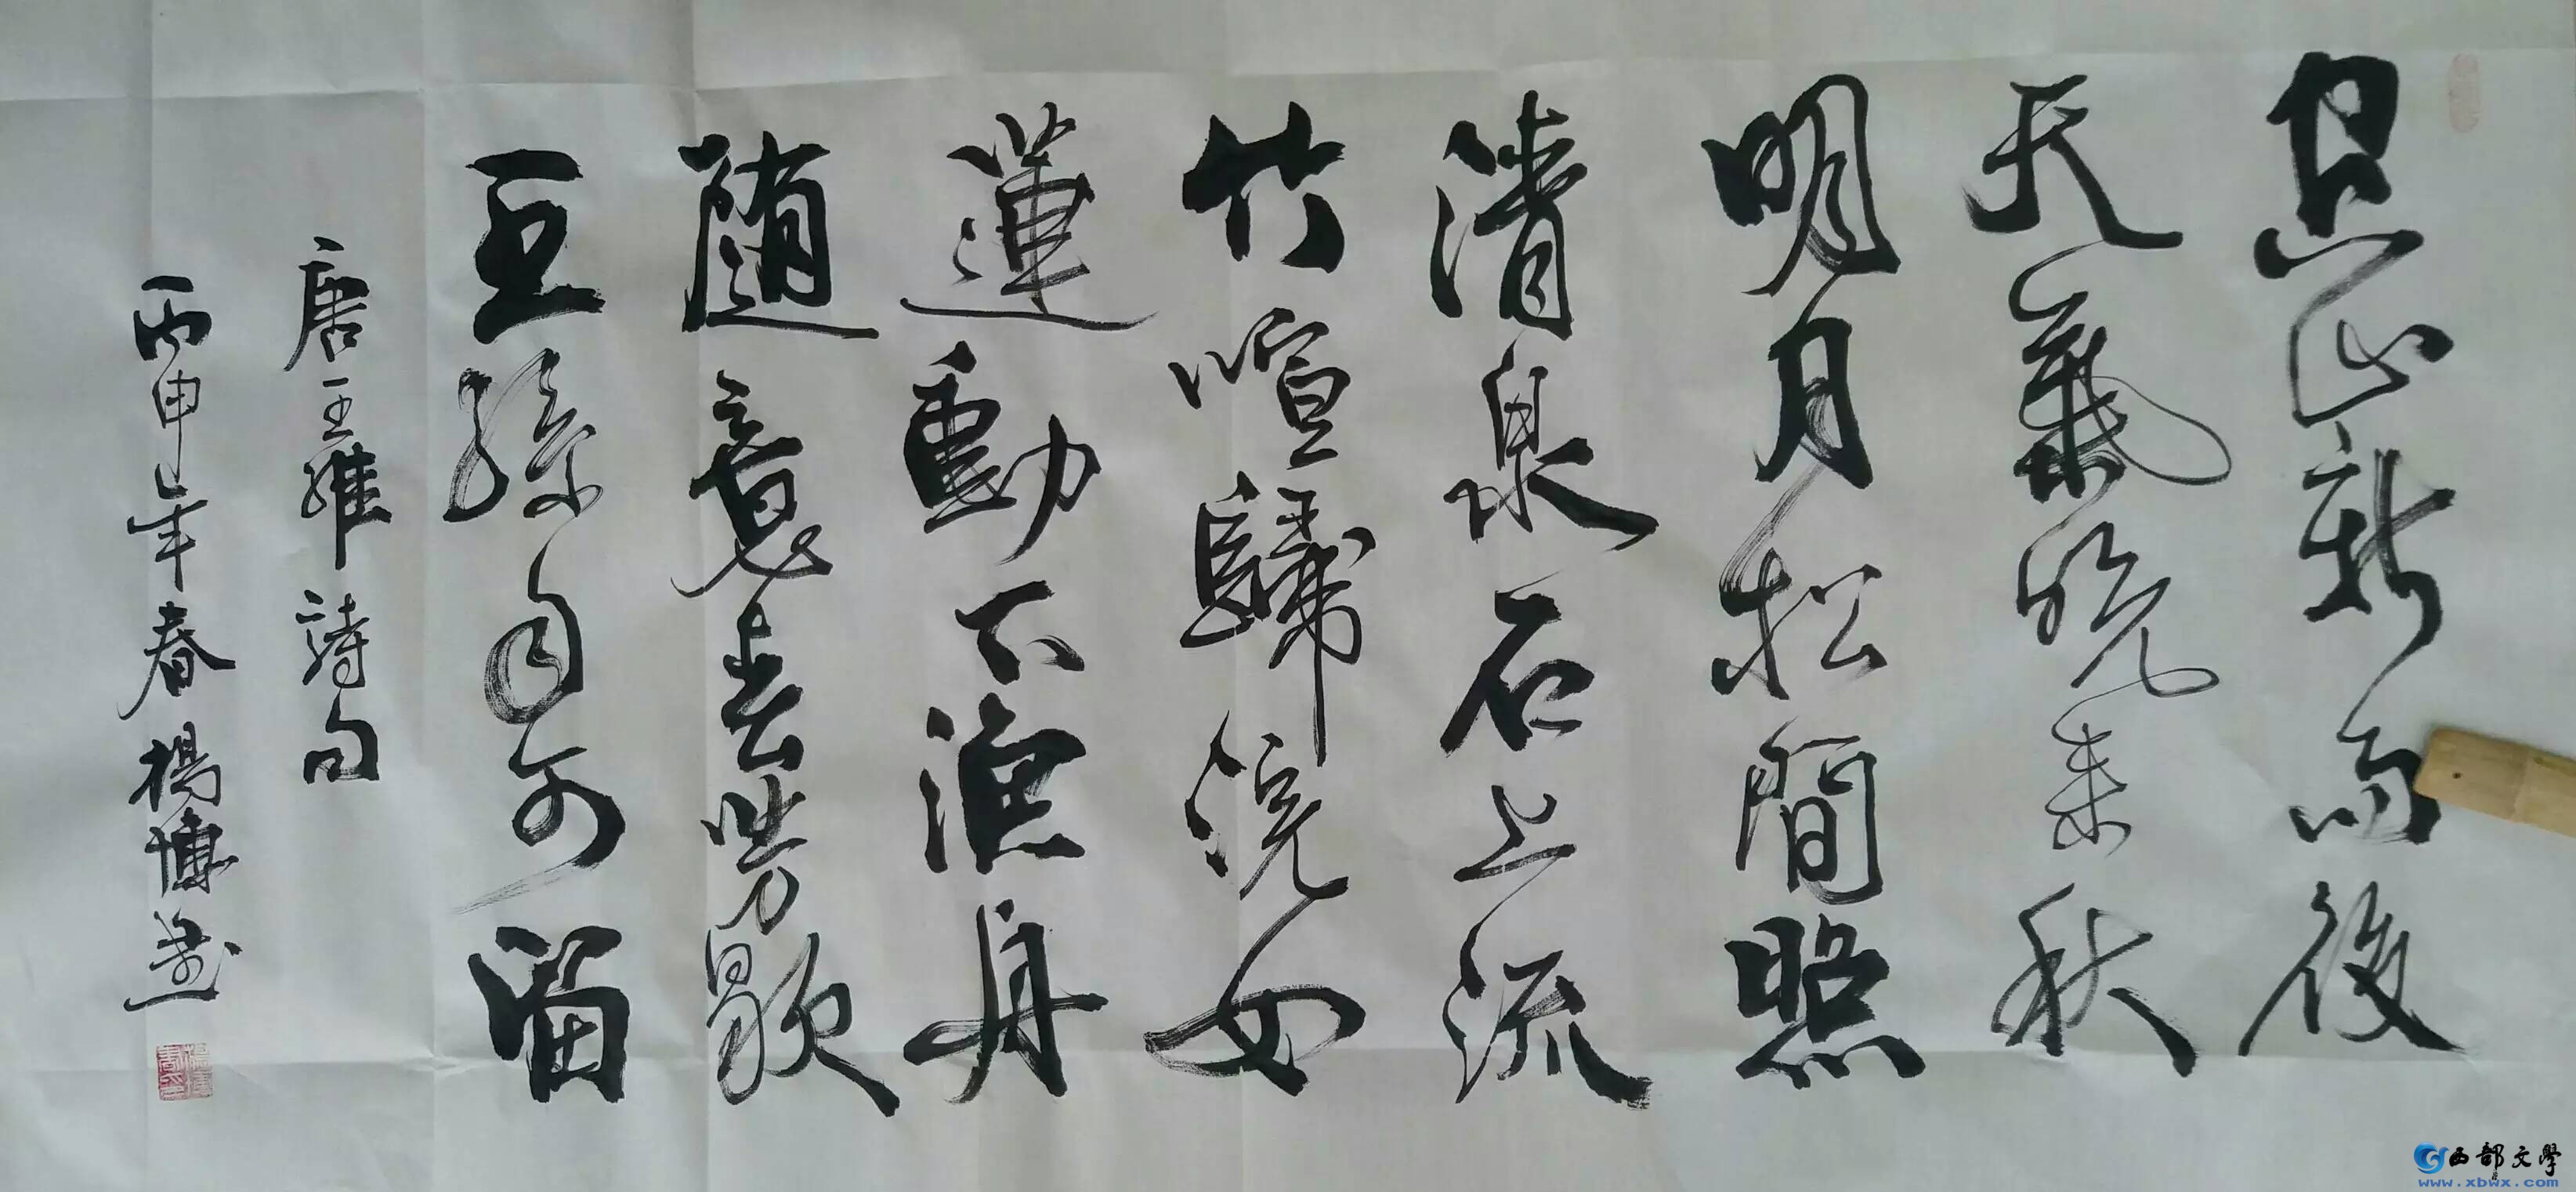 空山新雨後
天氣晚來秋
明月松間照
清泉石上流
竹喧歸浣女
蓮動下漁舟
随意春芳歇
王孫自可留
唐王維詩句
丙申年春楊博
西部文學
www.xbwx.com